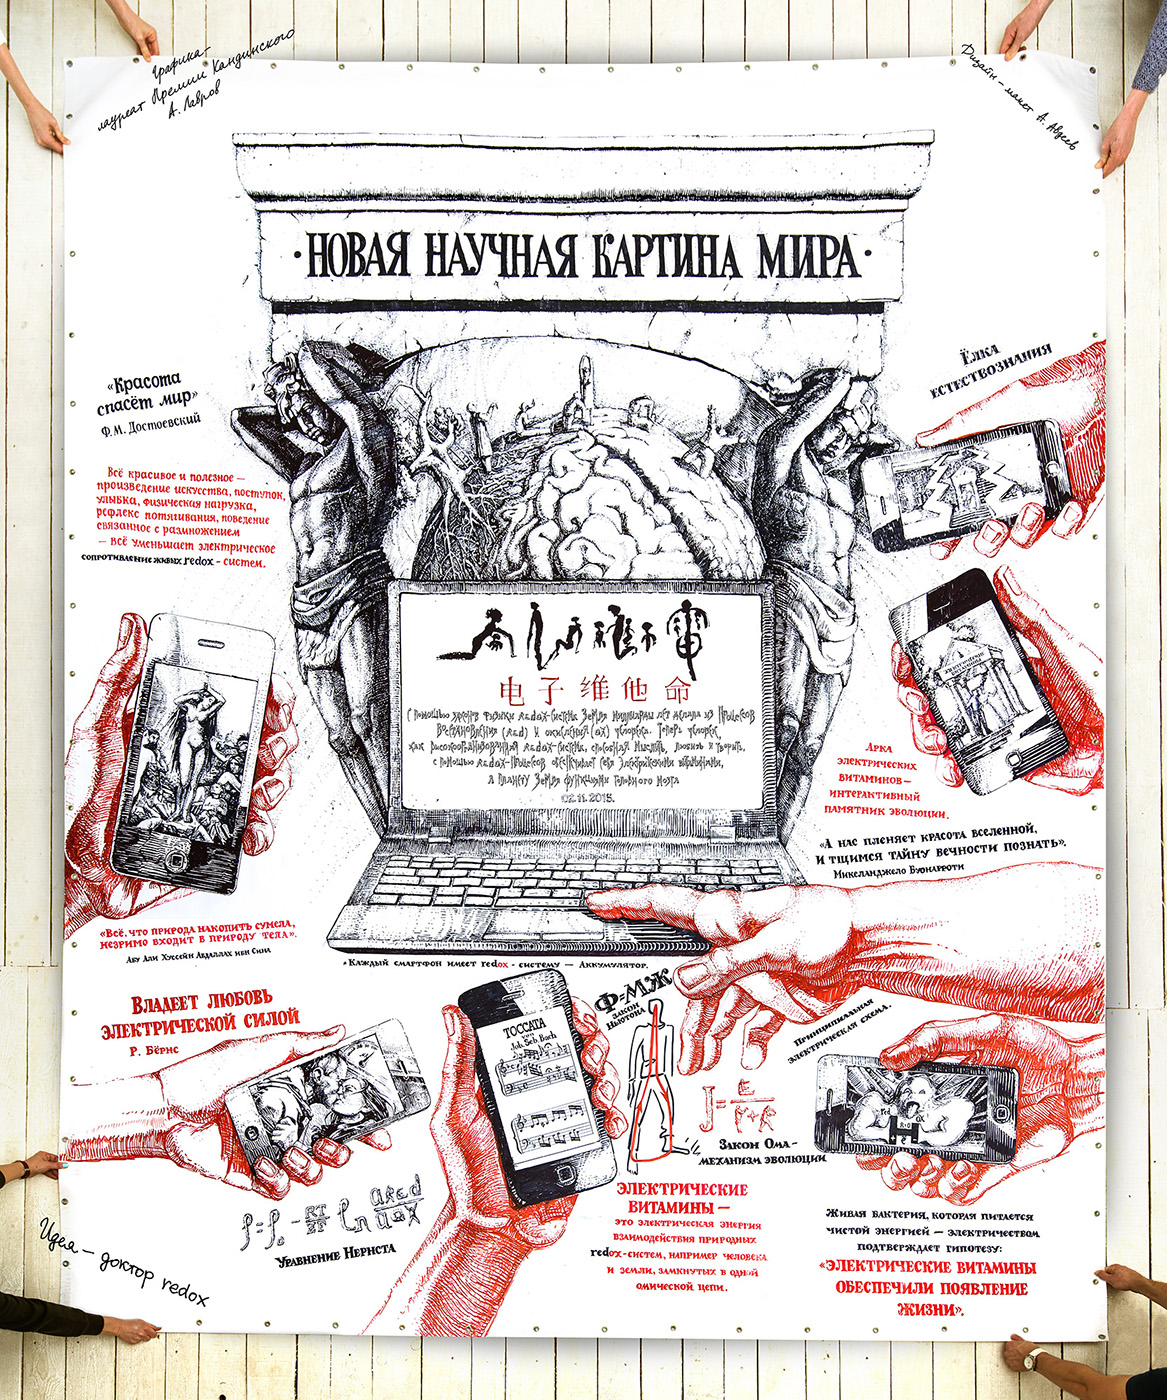 Графика-
лауреат Премии Кандинского
А. Лавров
Дизайн - макет А. Авдеев
·НОВАЯ НАУЧНАЯ КАРТИНА МИРА·
«Красота
спасёт мир»
Ф.М. Достоевский
Всё красивое и полезное —
произведение искусства, поступок,
улыбка, физическая нагрузка,
рефлекс потягивания, поведение
связанное с размножением
— всё уменьшает электрическое
сопротивление живых redox - систем.
Ёлка
естествознания
电子维他命
С помощью законов физики redox-система Земля миллиарды лет делала из процессов
восстановления (red) и окисления (ox) человека. Теперь человек,
как высокоорганизованная redox-система, способная мыслить, любить и творить,
с помощью redox-процессов обеспечивает себя электрическими витаминами,
а планету Земля функциями головного мозга
02.11.2015.
Арка
электрических
витаминов —
интерактивный
памятник эволюции.
«А нас пленяет красота вселенной,
и тщимся тайну вечности познать».
Микеланджело Буонарроти
«Всё, что природа накопить сумела,
незримо входит в природу тела».
Абу Али Хуссейн Абдаллах ибн Сина
• Каждый смартфон имеет redox - систему — Аккумулятор.
Владеет любовь
электрической силой
Р. Бёрнс
ТОССАТА
Joh. Seb. Bach
Ф=МЖ
закон
Ньютона
Принципиальная
электрическая схема.
J= E/r+R
Закон Ома -
механизм эволюции
Уравнение Нернста
Электрические
витамины —
это электрическая энергия
взаимодействия природных
redox-систем, например человека
и земли, замкнутых в одной
омической цепи.
Живая бактерия, которая питается
чистой энергией — электричеством
подтверждает гипотезу:
«Электрические витамины
обеспечили появление
жизни».
Идея — доктор redox